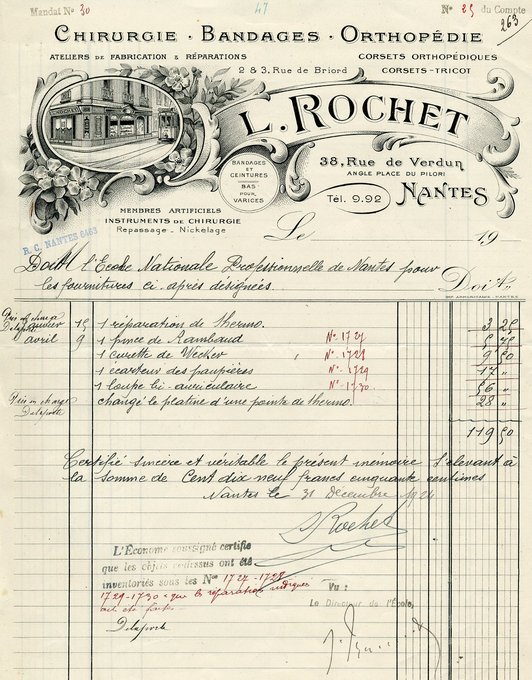 Mandat No 30
47
No 25 du Compte
263
CHIRURGIE · BANDAGES · ORTHOPÉDIE
ATELIERS DE FABRICATION & RÉPARATIONS
CORSETS ORTHOPÉDIQUES
2 & 3, Rue de Briord
CORSETS-TRICOT
L. ROCHET
38, Rue de Verdun
ANGLE PLACE DU PILORI
BANDAGES
ET
CEINTURES
BAS
POUR
VARICES
Tél. 9.92
NANTES
MEMBRES ARTIFICIELS
INSTRUMENTS DE CHIRURGIE
Repassage - Nickelage
R. C. NANTES 6463
Le 19
Doit l'Ecole Nationale Professionnelle de Nantes pour
les fournitures ci-après désignées.
Doit
Pris en charge
Delaporte
janvier 15 1 réparation de thermo. 3 25
avril 9 1 pince de Rambaud No 1727 5 75
1 curette de Wecker No 1728 9 50
1 écarteur des paupières No 1729 17 "
1 loupe bi-auriculaire No 1730 56 "
Pris en charge
Delaporte
changé le platine d'une pointe de thermo. 28 "
119 50
Certifié sincère et véritable le présent mémoire s'élevant à
la somme de Cent dix neuf francs cinquante centimes
Nantes le 31 Décembre
Rochet
L'Économe soussigné certifie
que les objets cidessus ont été
inventoriés sous les Nos 1727-1728
1729-1730 que les réparations indiquées
ont été faites
Delaporte
Vu :
Le Directeur de l'École,